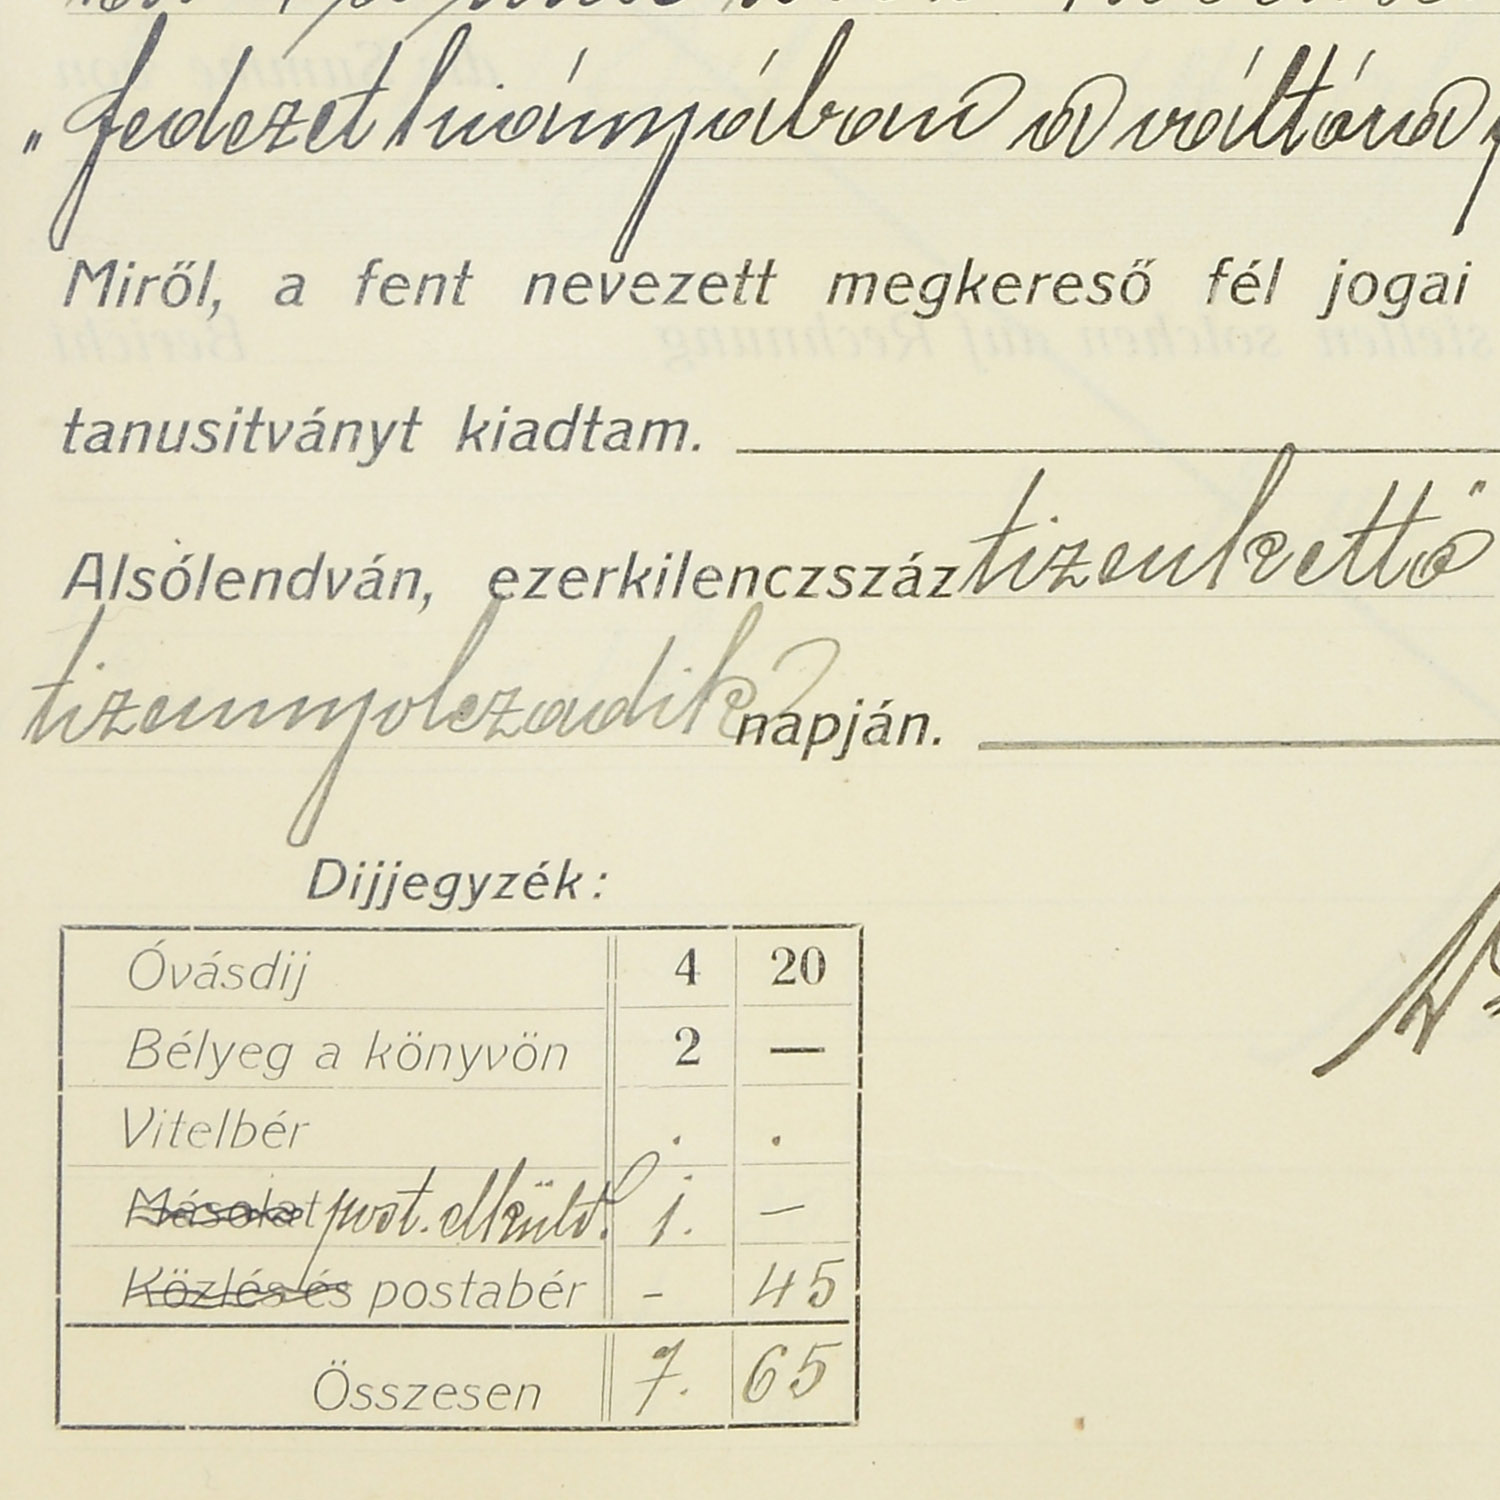 „fedezet hiányában a váltóra
Miről, a fent nevezett megkereső fél jogai
tanusitványt kiadtam.
Alsólendván, ezerkilenczszáz tizenkettő
tizennyolczadik napján.
Dijjegyzék:
Óvásdij 4 20
Bélyeg a könyvön 2 —
Vitelbér . .
Másolat post. elküld. 1. —
Közlés és postabér - 45
Összesen 7. 65